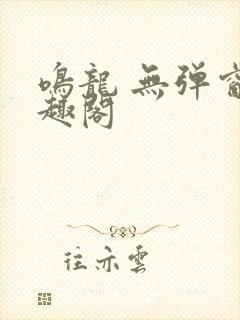 鳴龍 無弹窗
趣閣
往亦雲